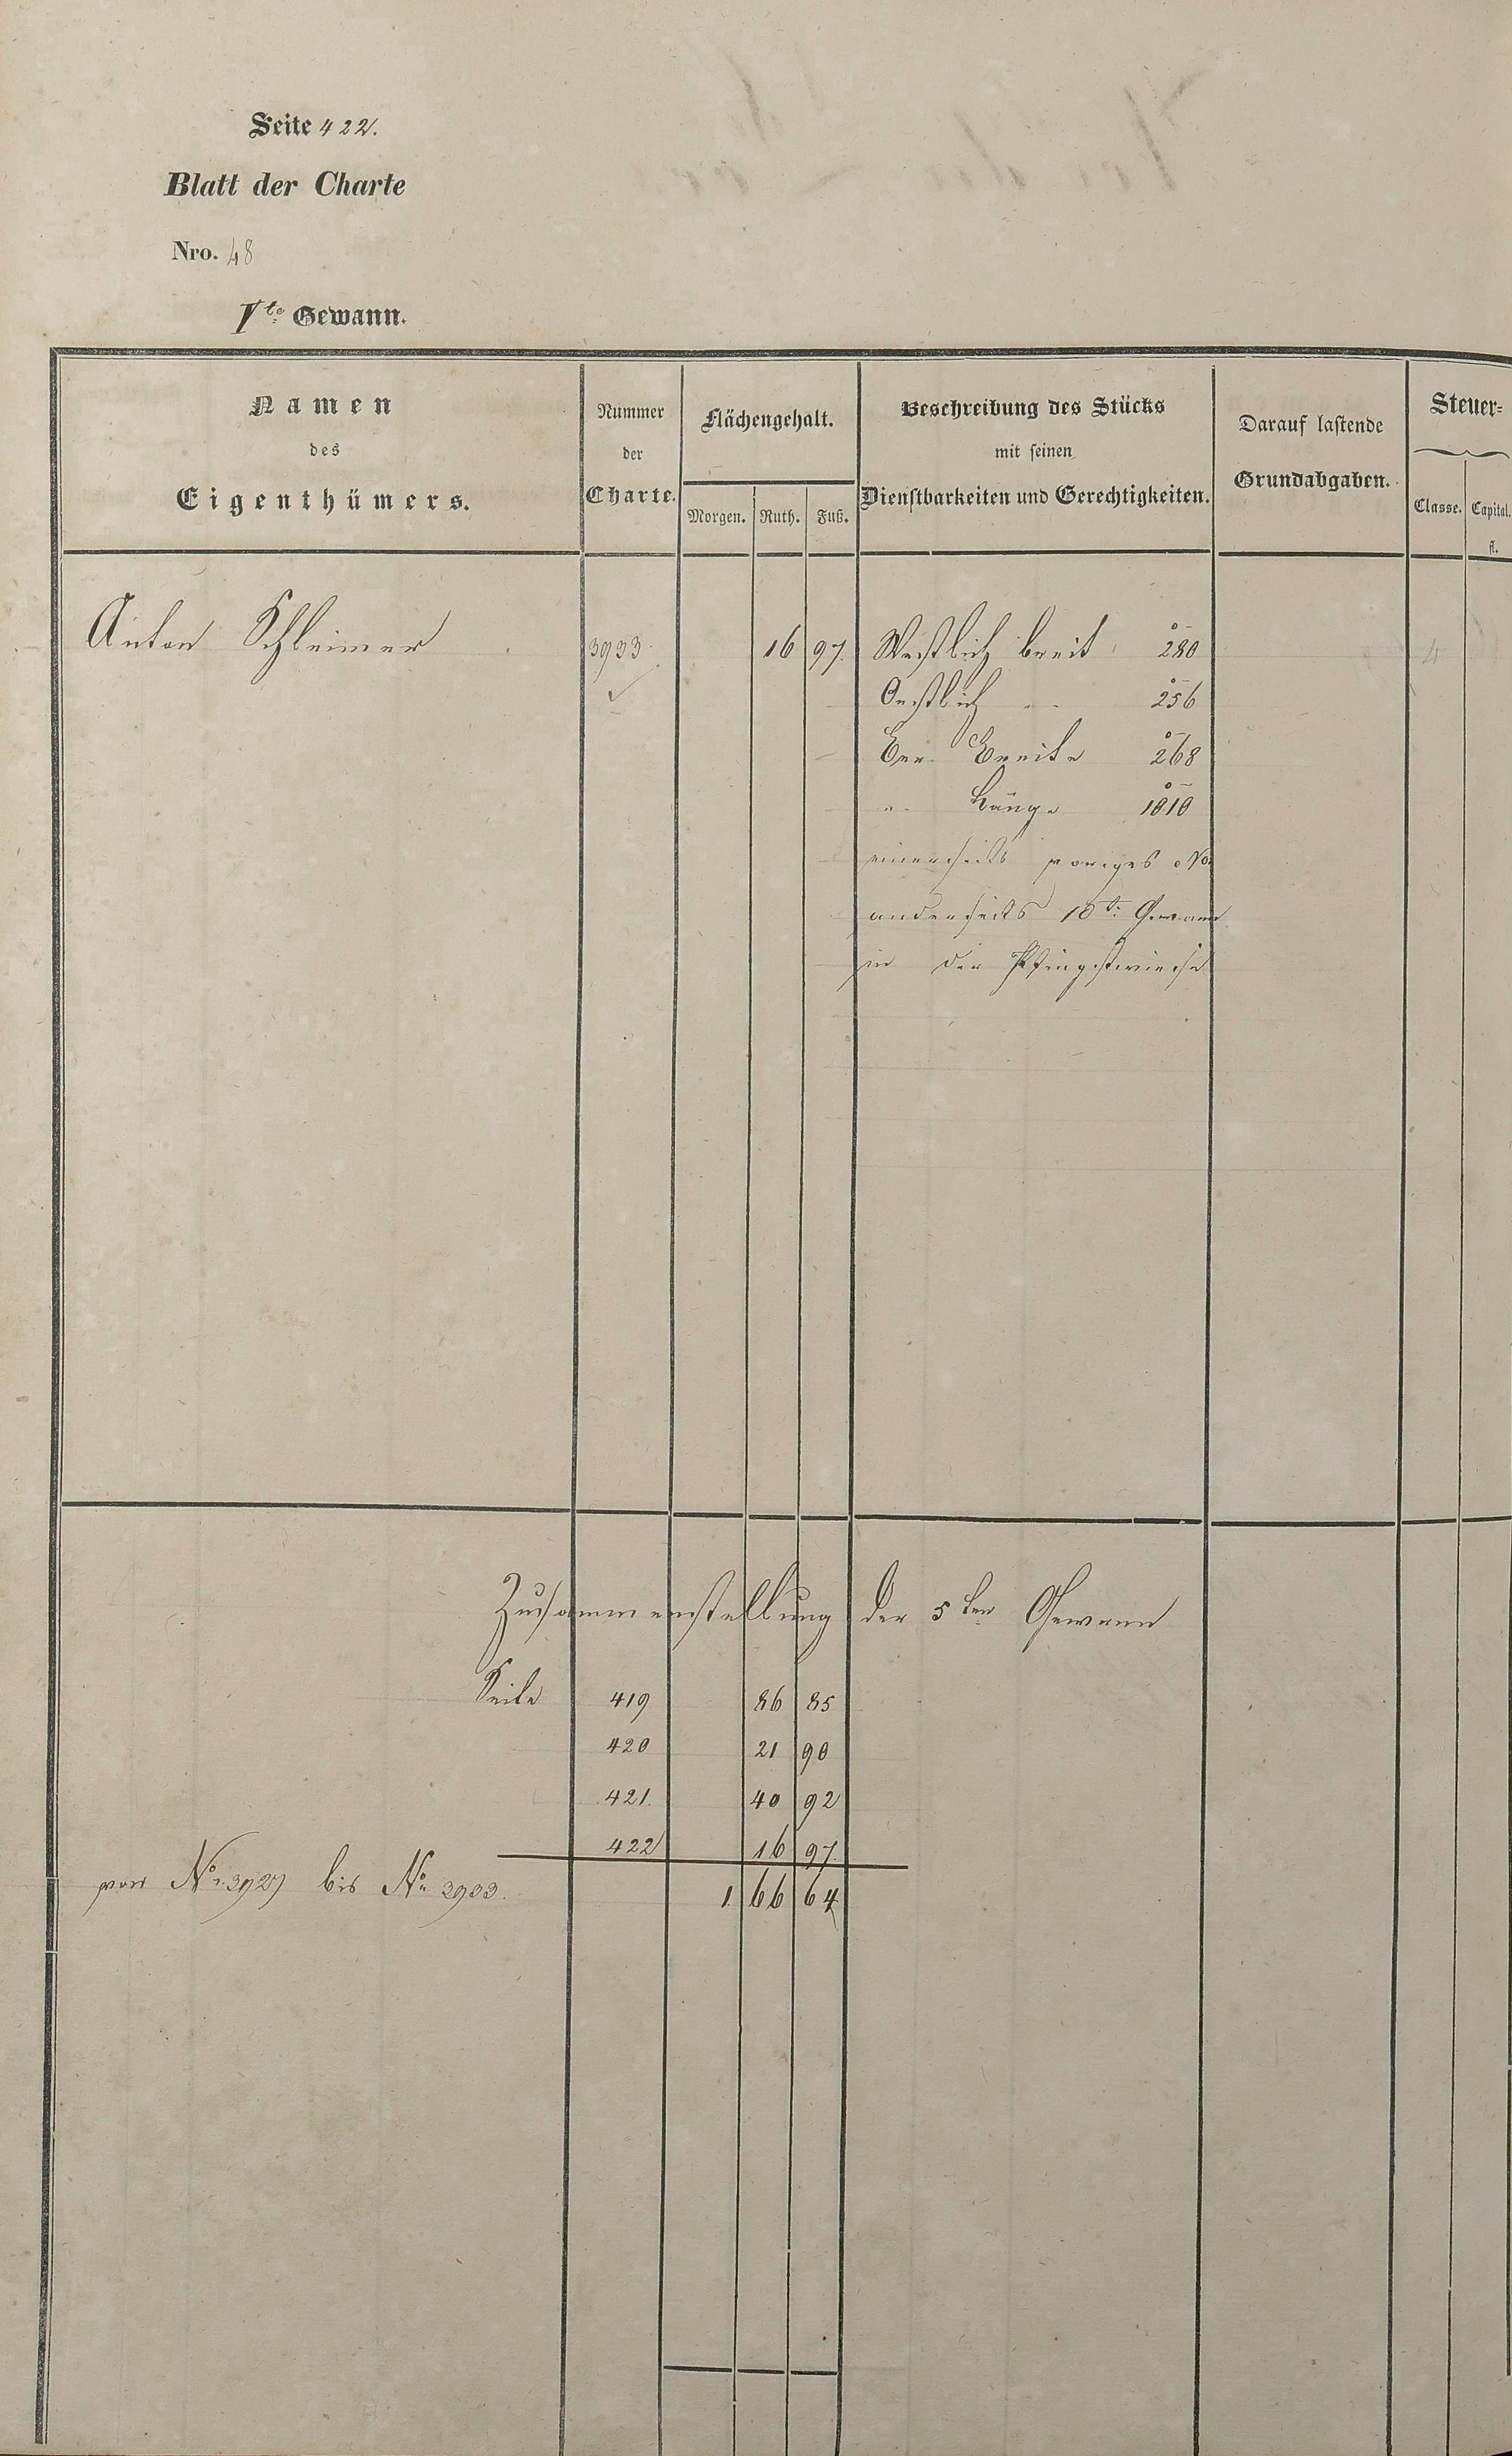 Seite 422.
Blatt der Charte
Nro. 48
Vte Gewann.
Namen
des
Eigenthümers.
Nummer
der
Charte.
Flächengehalt.
Morgen. Ruth. Fuß.
Beschreibung des Stücks
mit seinen
Dienstbarkeiten und Gerechtigkeiten.
Darauf lastende
Grundabgaben.
Steuer=
Classe. Capital.
fl.
Anton Schleimer 3933 16 97. Westlich breit 280 4
Oestlich " 256
Ber. Breite 268
" Länge 1010
einerseits voriges No
anderseits 10te Gewann
in der Pfingstwiese
Zusammenstellung der 5ten Gewann
Seite 419 86 85
420 21 90
421. 40 92
422 16 97.
von No 3927 bis No 3933. 1. 66 64